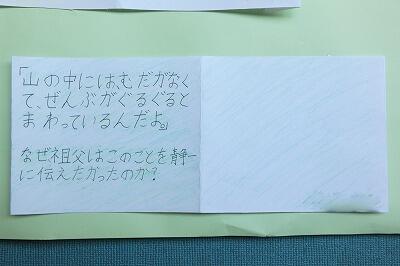 「山の中には、むだがなく
て、ぜんぶがぐるぐると
まわっているんだよ。」
なぜ祖父はこのことを静一
に伝えたかったのか?